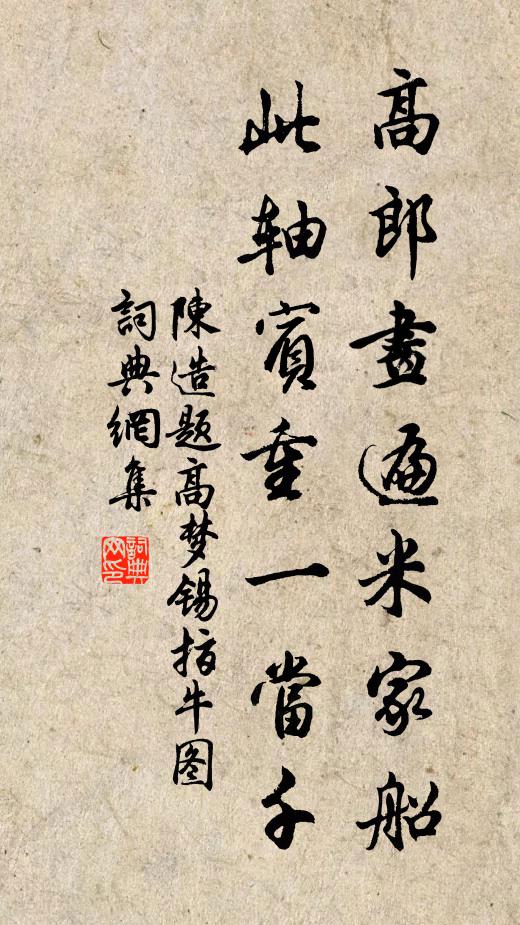 高郎畫遍米家船
此轴賓重一當千
陳造題高梦锡指牛图
詞典網集
詞典网印